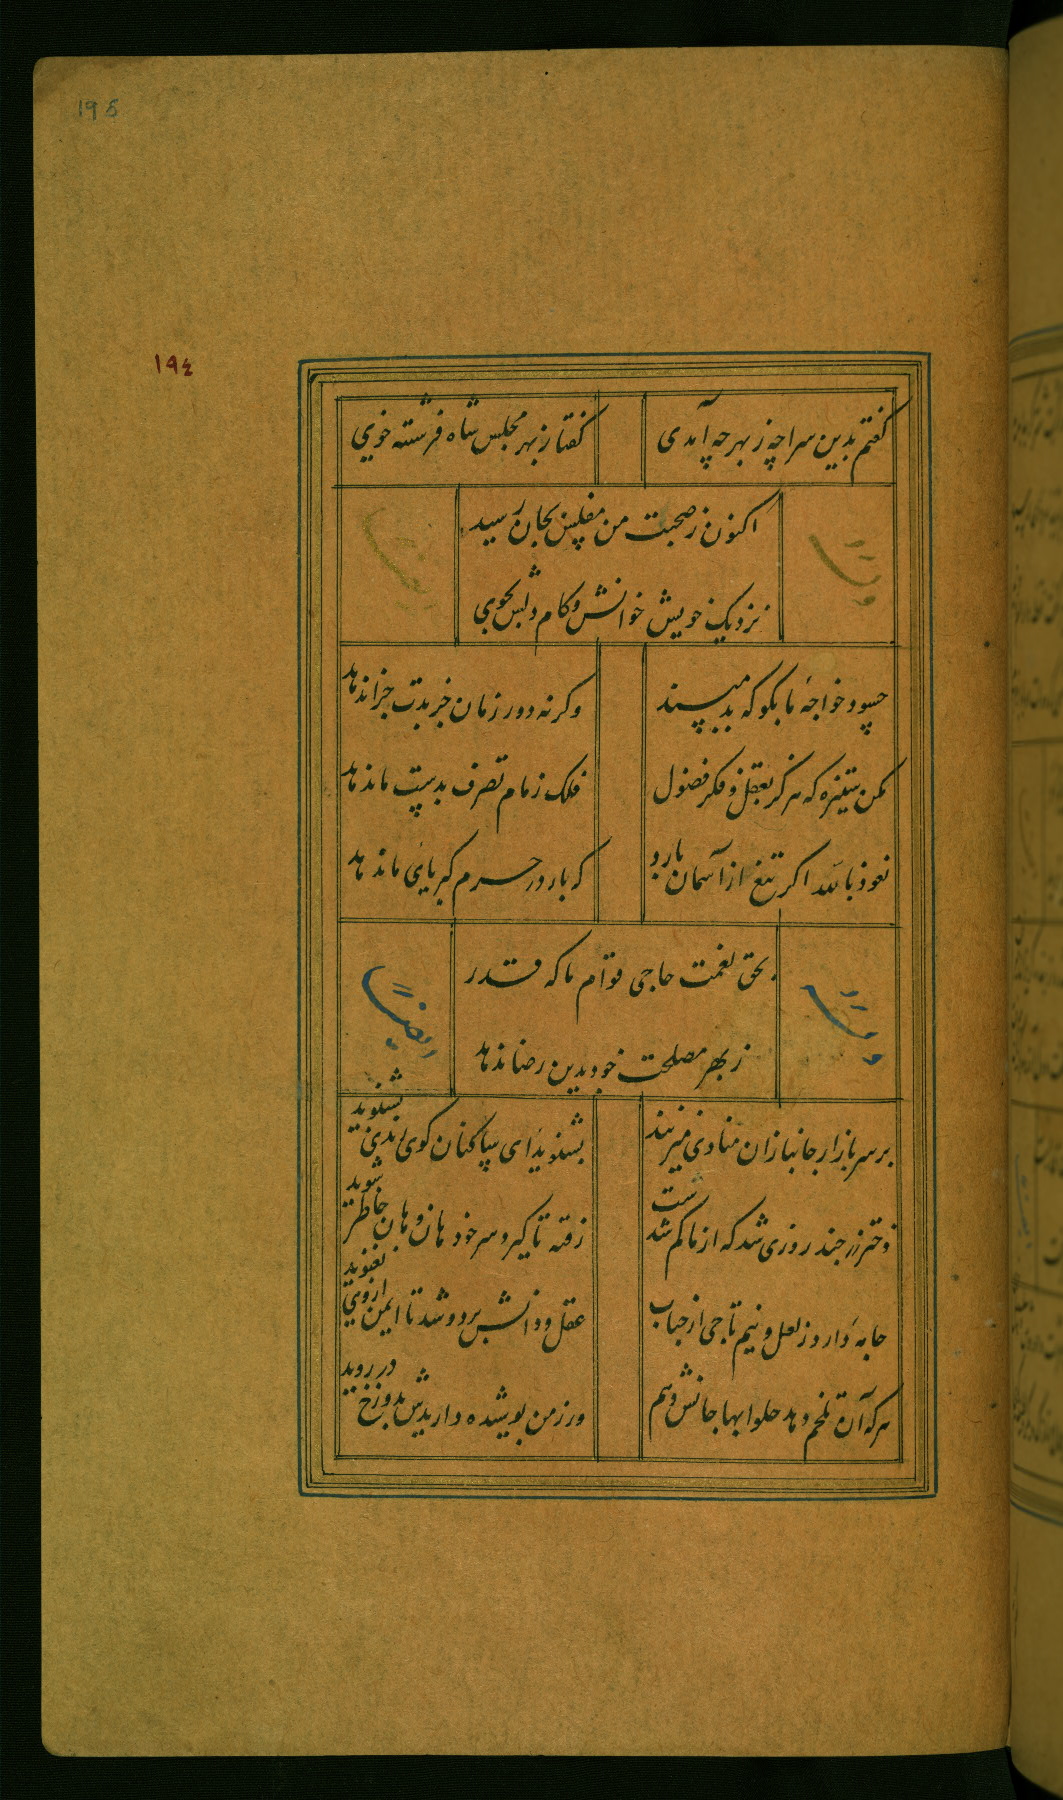 195
١٩٤
گفتم بدین سراچه ز بهر چه آمدی
گفتا ز بهر مجلس شاه فرشته خوی
اکنون ز صحبت من مفلس بجان رسید
نزدیک خویش خوانش و کام دلش بجوی
وله
ایضاً
حسود خواجهٔ ما بگو که بد مپسند
وگرنه دور زمان جز بدت جزا ندهاد
مکن ستیزه که هرگز بعقل و فکر فضول
فلک زمام تصرف بدست ما ندهاد
نعوذ بالله اگر تیغ از آسمان بارد
که بار در حرم کبریای ما ندهاد
بحق نعمت حاجی قوام ما که قدر
ز بهر مصلحت خود بدین رضا ندهاد
وله
ایضاً
بر سر بازار جانبازان منادی میزنند
بشنوید ای ساکنان کوی رندی بشنوید
دختر رز چند روزی شد که از ما گم شدست
رفته تا گیرد سر خود هان و هان حاضر شوید
جامهٔ دارد ز لعل و نیم تاجی از حباب
عقل و دانش برد و شد تا ایمن از وی نغنوید
هر که آن تلخم دهد حلوا بها جانش دهم
ور ز من پوشیده داریدش بدوزخ در روید